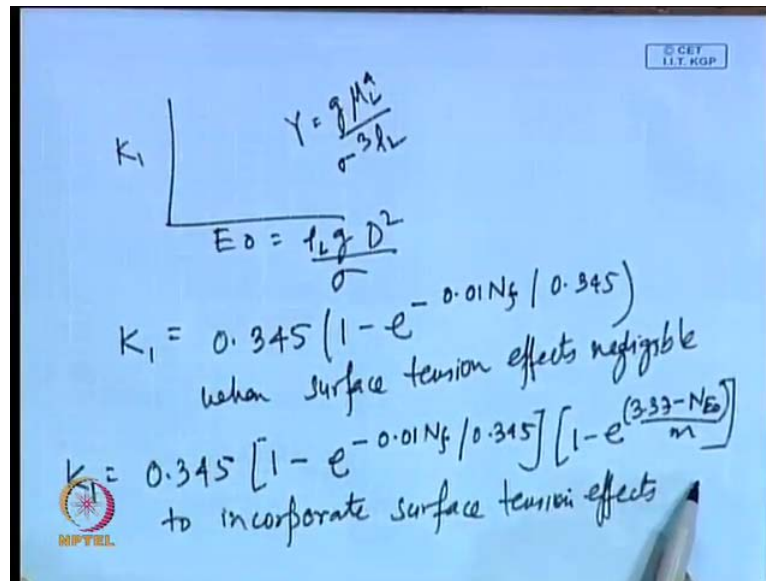 © CET
I.I.T. KGP
Y = g μ_L^4 / σ^3 ρ_L
K_1
E0 = ρ_L g D^2 / σ
K_1 = 0.345 (1 - e^{- 0.01 N_f / 0.345})
when surface tension effects negligible
K_1 = 0.345 [1 - e^{- 0.01 N_f / 0.345}] [1 - e^{(3.37 - N_{E0}) / m}]
to incorporate surface tension effects
NPTEL